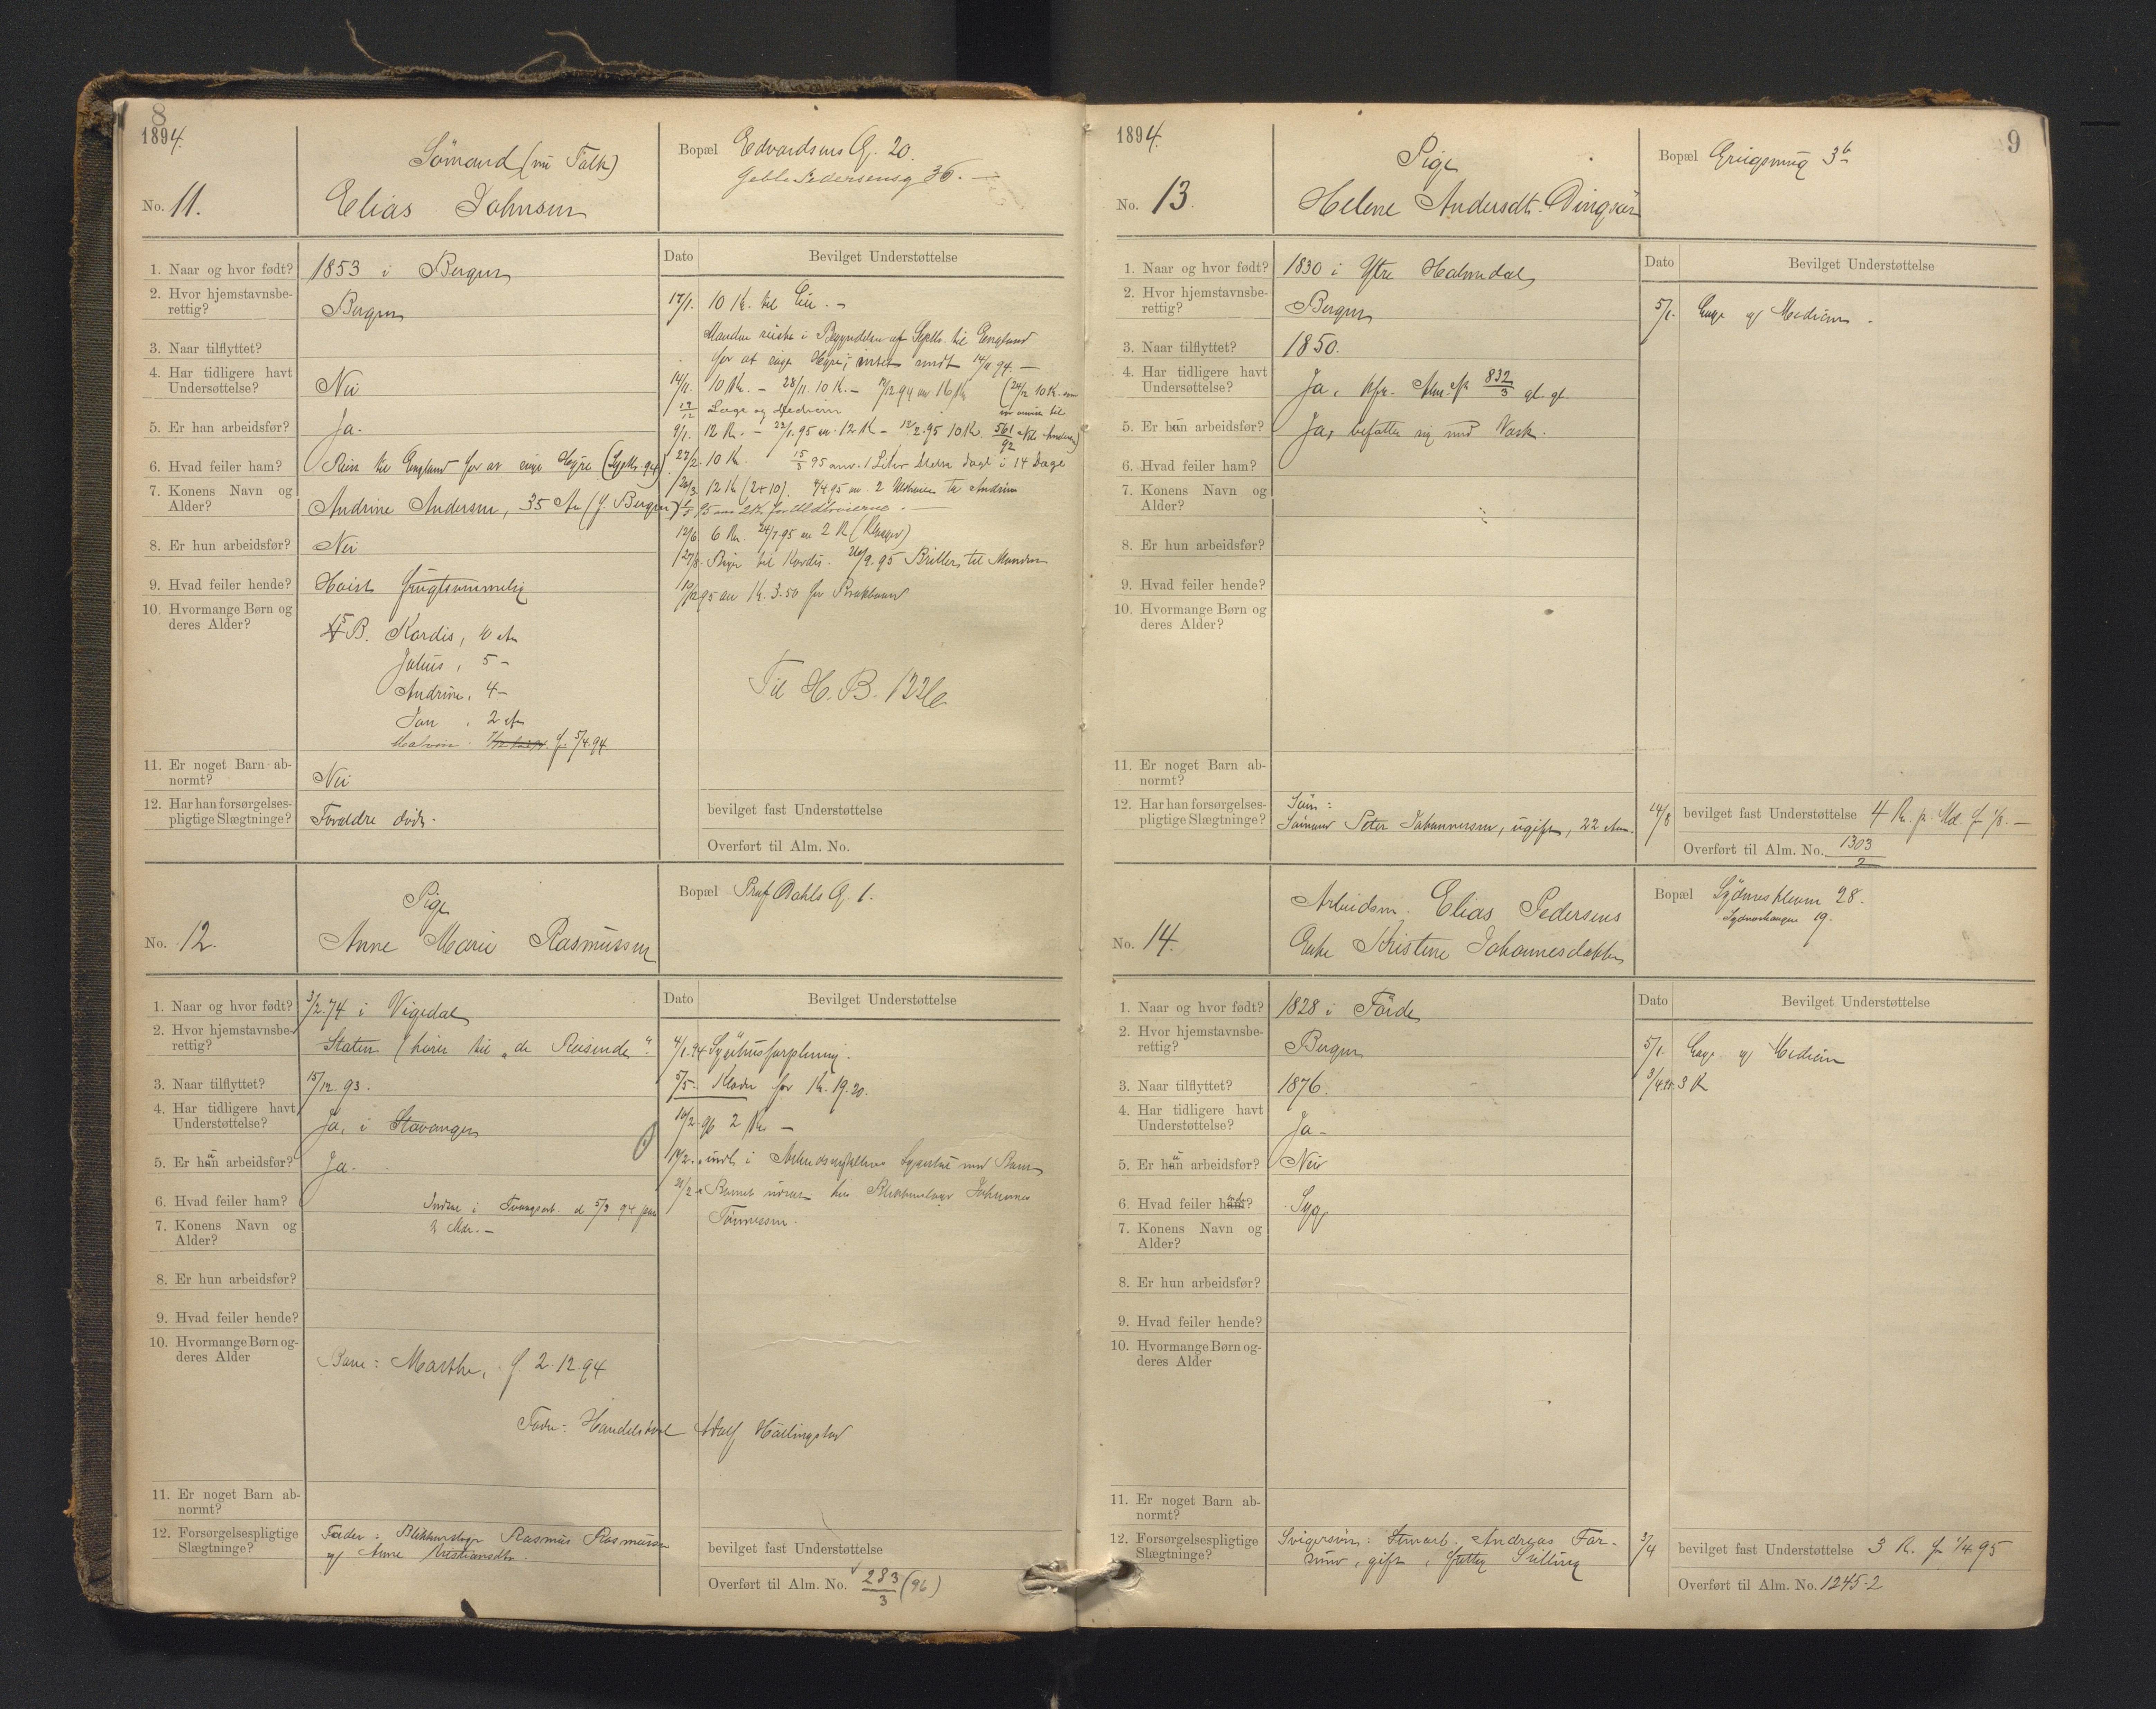 8
1894.
No. 11.
Sömand (nu Falk)
Elias Johnsen
Bopæl Edvardsens G. 20.
Geble Pedersensg 36. —
1. Naar og hvor født? 1853 i Bergen
2. Hvor hjemstavnsbe-
rettig? Bergen
3. Naar tilflyttet?
4. Har tidligere havt
Undersøttelse? Nei
5. Er han arbeidsfør? Ja.
6. Hvad feiler ham? Reist til England for at søge Hyre (Septbr. 94)
7. Konens Navn og
Alder? Andrine Andersen, 35 Aar (f. Bergen)
8. Er hun arbeidsfør? Nei
9. Hvad feiler hende? Höist frugtsommelig
10. Hvormange Børn og
deres Alder? 5 B. Kordis,
Julius, 5 –
Andrine, 4 –
Jon, 2 Aar
f. 5/4.94
11. Er noget Barn ab-
normt? Nei
12. Har han forsørgelses-
pligtige Slægtninge? Forældre döde.
Dato
Bevilget Understøttelse
17/1. 10 Kr. til –
Manden reiste i Begyndelsen af Septbr. til England
for at søge Hyre; intet sendt 14/11 94. —
14/11. 10 Kr. – 28/11. 10 K. – 16 Kr (24/12 10 K.
19/12 Læge og Medicin
9/1. 12 K. – 22/1.95 12 K – 12/2.95 10 K. 561/92
27/2. 10 K. 15/3 95 anv. 1 Liter Melk dagl i 14 Dage
20/3. 12 K (2+10). 4/4.95 an. 2 til Andrine
12/6. 6 Kr. 24/7.95 an 2 K
27/8. Bøger til Kordis. 26/9.95 Briller til Manden
19/12 95 an K. 3.50 for Brokbaand
Til H. B. 1226
bevilget fast Understøttelse
Overført til Alm. No.
No. 12.
Pige
Anne Marie Rasmussen
Bopæl Prof. Dahls G. 1.
1. Naar og hvor født? 3/2.74 i Vigedal
2. Hvor hjemstavnsbe-
rettig? Staten (hører til „de Reisende“.
3. Naar tilflyttet? 15/12.93.
4. Har tidligere havt
Understøttelse? Ja, i Stavanger
5. Er hun arbeidsfør? Ja.
6. Hvad feiler ham? Indsat i Tvangsarb. d 5/3 94 paa
7. Konens Navn og
Alder? Mdr. –
8. Er hun arbeidsfør?
9. Hvad feiler hende?
10. Hvormange Børn og-
deres Alder Barn: Marthe, f. 2.12.94
Fader: Adolf
11. Er noget Barn ab-
normt?
12. Forsørgelsespligtige
Slægtninge? Fader: Blikkenslager Rasmus Rasmussen
og Anne Kristiansdtr.
Dato
Bevilget Understøttelse
4/1.94 Sygehusforpleining.
5/5. Klæder for Kr. 19.20.
14/2.96 2 Kr –
14/2. indl. i Arbeidsanstaltens Sygestue med Barn
Barnet udsat hos Blikkenslager Johannes
Tönnessen.
bevilget fast Understøttelse
Overført til Alm. No. 283/3 (96)
9
1894.
No. 13.
Pige
Helene Andersdt. Dingsör
Bopæl Griegsmug 3b
1. Naar og hvor født? 1830 i Ytre Holmedal
2. Hvor hjemstavnsbe-
rettig? Bergen
3. Naar tilflyttet? 1850.
4. Har tidligere havt
Undersøttelse? Ja, kfr. Alm. № 832/3 gl. gl.
5. Er hun arbeidsfør? Ja, befatter sig med Vask.
6. Hvad feiler ham?
7. Konens Navn og
Alder?
8. Er hun arbeidsfør?
9. Hvad feiler hende?
10. Hvormange Børn og
deres Alder?
11. Er noget Barn ab-
normt?
12. Har han forsørgelses-
pligtige Slægtninge? Sön:
Sömand Peter Johannessen, ugift, 22 Aar.
Dato
Bevilget Understøttelse
5/1. Læge og Medicin.
14/8 bevilget fast Understøttelse 4 Kr. p. Md. fr 1/8. —
Overført til Alm. No. 1303/2
No. 14.
Arbeidsm. Elias Pedersens
Enke Kristine Johannesdatter
Bopæl Sydneskleven 28.
Sydneshaugen 19.
1. Naar og hvor født? 1828 i Förde
2. Hvor hjemstavnsbe-
rettig? Bergen
3. Naar tilflyttet? 1876.
4. Har tidligere havt
Understøttelse? Ja –
5. Er hun arbeidsfør? Nei
6. Hvad feiler hende? Syg
7. Konens Navn og
Alder?
8. Er hun arbeidsfør?
9. Hvad feiler hende?
10. Hvormange Børn og-
deres Alder
11. Er noget Barn ab-
normt?
12. Forsørgelsespligtige
Slægtninge? Svigersön: Stenarb. Andreas
gift, fattig Stilling
Dato
Bevilget Understøttelse
5/1. Læge og Medicin
3/4.95. 3 K
3/4 bevilget fast Understøttelse 3 K. fr 1/4 95
Overført til Alm. No. 1245.2